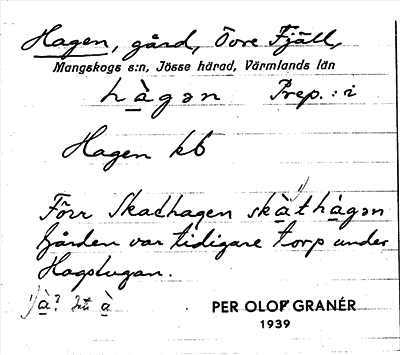 Hagen, gård, Övre Fjäll,
Mangskogs s:n, Jösse härad, Värmlands län
hàgən Prep.: i
Hagen kb
Förr Skathagen skàthàgən
Gården var tidigare torp under
Hagstugan.
à? Inte à
PER OLOF GRANÉR
1939